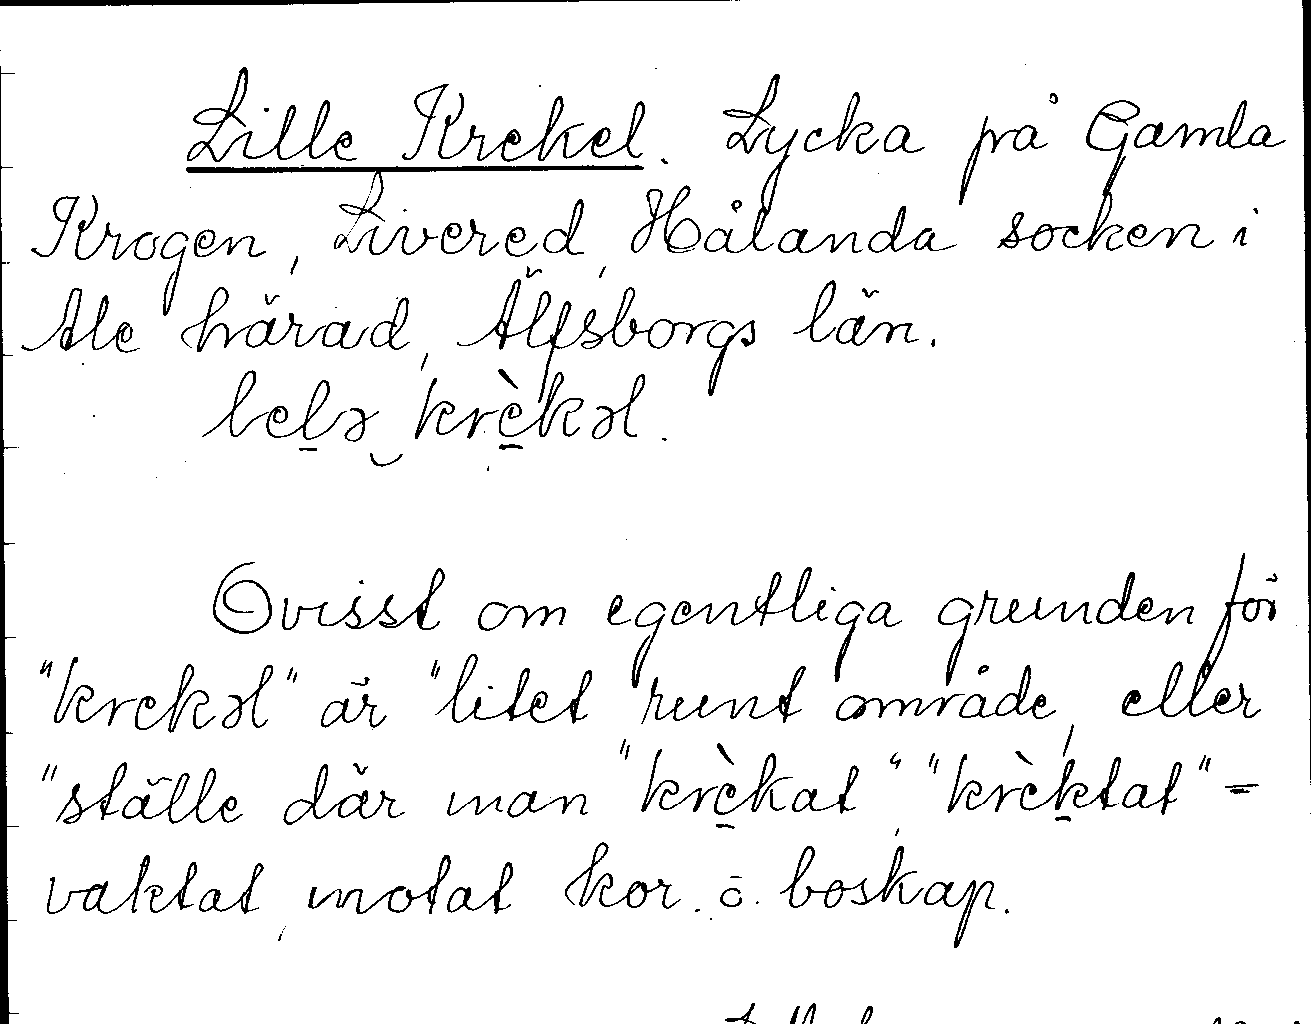 Lille Krekel. Lycka på Gamla
Krogen, Livered, Hålanda socken i
Ale härad, Älfsborgs län.
lelə krèkəl.
Ovisst om egentliga grunden för
"krekəl" är "litet runt område, eller
"ställe där man "krèkat", "krèktat" =
vaktat, motat kor. o. boskap.